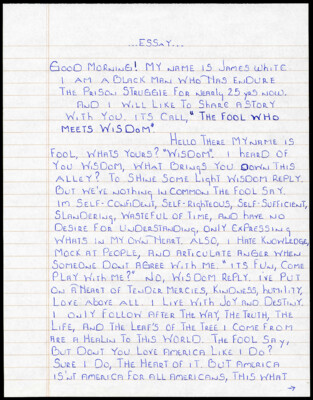 ...ESSAY...
GOOD MORNING! MY NAME IS JAMES WHITE
I AM A BLACK MAN WHO HAS ENDURE
THE PRISON STRUGGLE FOR NEARLY 25 YRS NOW.
AND I WILL LIKE TO SHARE A STORY
WITH YOU. ITS CALL, "THE FOOL WHO
MEETS WISDOM".
HELLO THERE MY NAME IS
FOOL, WHATS YOURS? "WISDOM". I HEARD OF
YOU WISDOM, WHAT BRINGS YOU DOWN THIS
ALLEY? TO SHINE SOME LIGHT WISDOM REPLY.
BUT WE'VE NOTHING IN COMMON THE FOOL SAY.
IM SELF-CONFIDENT, SELF-RIGHTEOUS, SELF-SUFFICIENT,
SLANDERING, WASTEFUL OF TIME, AND HAVE NO
DESIRE FOR UNDERSTANDING, ONLY EXPRESSING
WHATS IN MY OWN HEART. ALSO, I HATE KNOWLEDGE,
MOCK AT PEOPLE, AND ARTICULATE ANGER WHEN
SOMEONE DONT AGREE WITH ME. "ITS FUN, COME
PLAY WITH ME?" NO, WISDOM REPLY. I'VE PUT
ON A HEART OF TENDER MERCIES, KINDNESS, HUMILITY,
LOVE ABOVE ALL. I LIVE WITH JOY AND DESTINY.
I ONLY FOLLOW AFTER THE WAY, THE TRUTH, THE
LIFE, AND THE LEAFS OF THE TREE I COME FROM
ARE A HEALIN TO THIS WORLD. THE FOOL SAY,
BUT DONT YOU LOVE AMERICA LIKE I DO?
SURE I DO, THE HEART OF IT. BUT AMERICA
IS'NT AMERICA FOR ALL AMERICANS, THIS WHAT
→